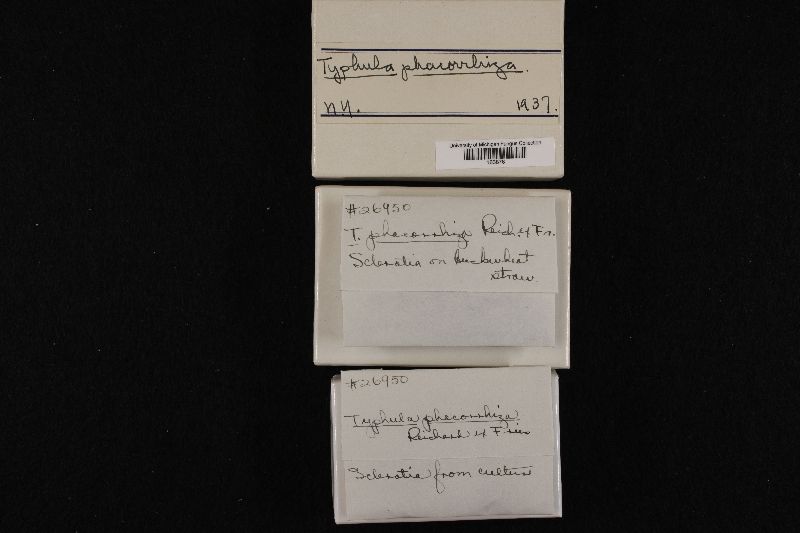 Typhula phacorrhiza.
N.Y. 1937.
University of Michigan Fungus Collection
#26950
T. phacorrhiza Reich. ex Fr.
Sclerotia on buckwheat
straw
#26950
Typhula phacorrhiza
Reichard ex Fries
Sclerotia from culture